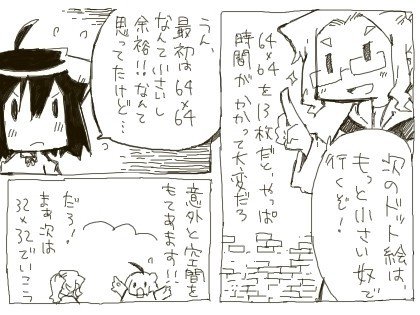 次のドット絵は、
もっと小さい奴で
行くぞ!
64×64を13枚だと、やっぱ
時間がかかって大変だろ
うん、
最初は64×64
なんて小さいし
余裕!!なんて
思ってたけど…
意外と空間を
もてあます!!
だろ!
まあ次は
32×32でいこう